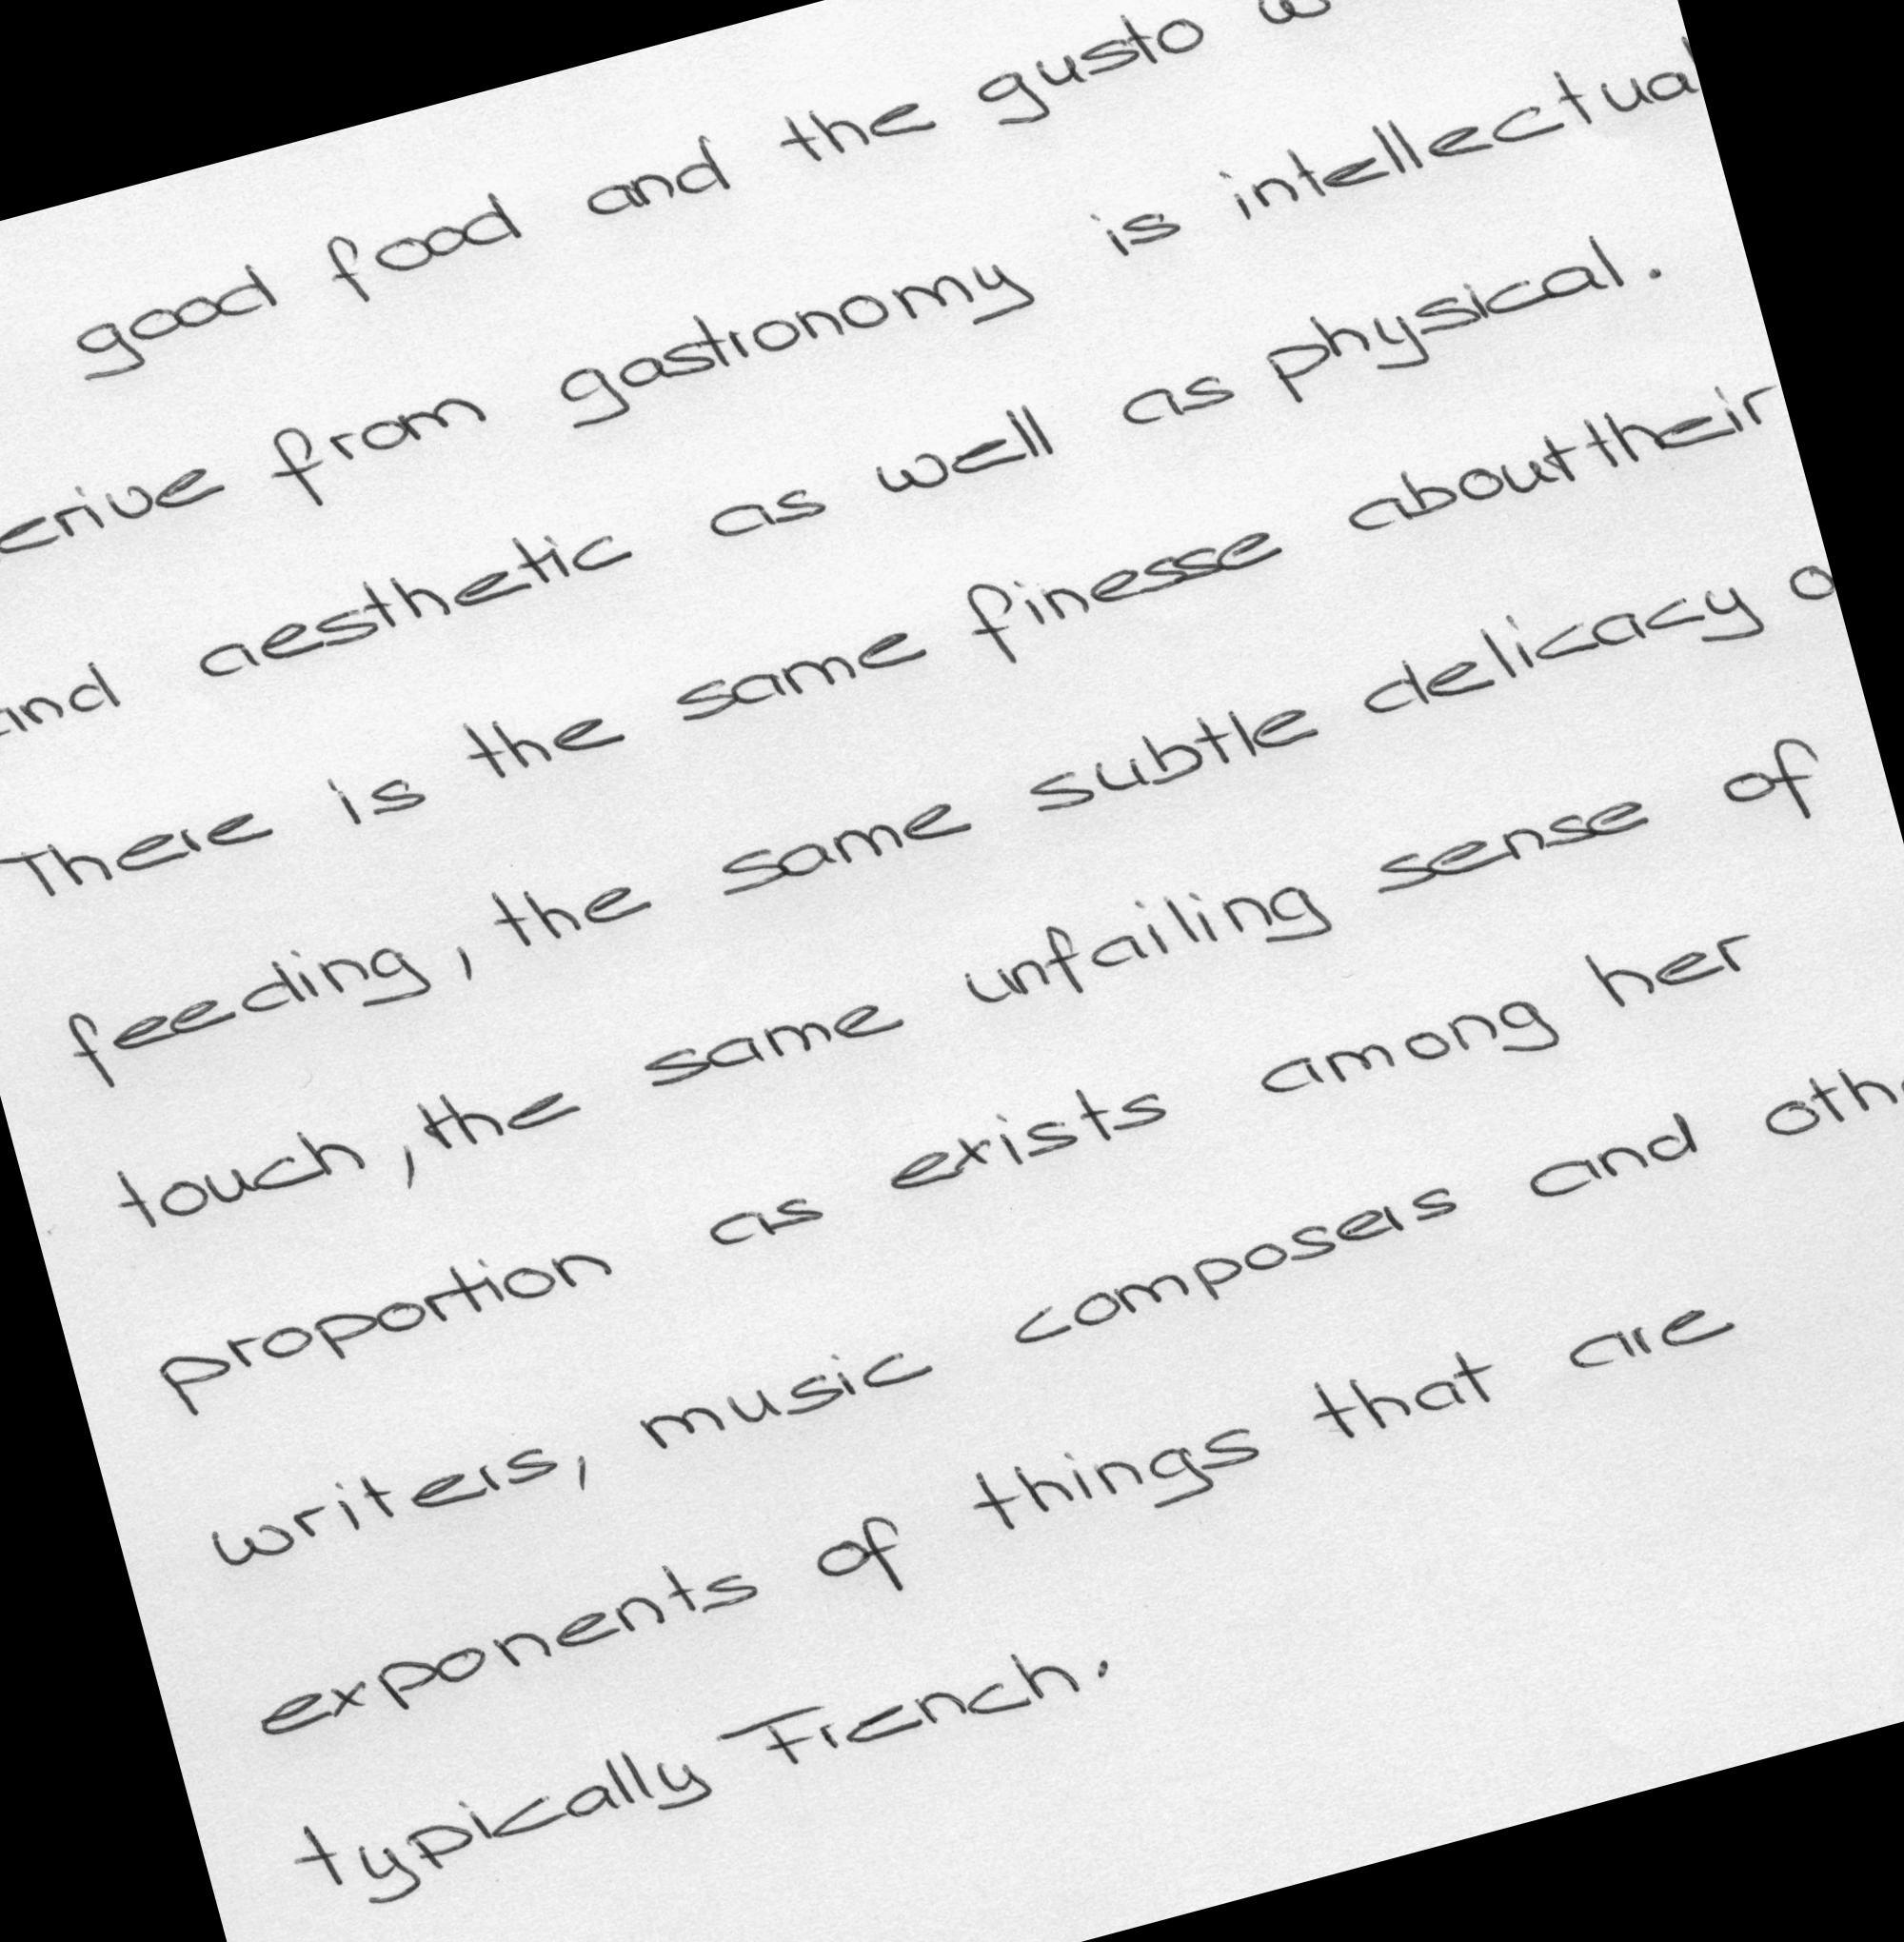 good food and the gusto
from gastronomy is intellectual
and aesthetic as well as physical.
There is the same finesse about their
feeding, the same subtle delicacy
touch, the same unfailing sense of
proportion as exists among her
writers, music composers and
exponents of things that are
typically French.